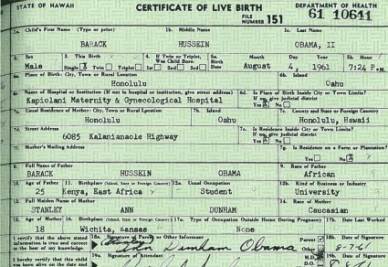 STATE OF HAWAII CERTIFICATE OF LIVE BIRTH DEPARTMENT OF HEALTH
FILE NUMBER 151 61 10641
1a. Child's First Name (Type or print) 1b. Middle Name 1c. Last Name
BARACK HUSSEIN OBAMA, II
2. Sex 3. This Birth 4. If Twin or Triplet, Was Child Born Month Day Year Hour
Male Single Twin Triplet 1st 2nd 3rd August 4, 1961 7:24 P.M.
6a. Place of Birth: City, Town or Rural Location 6b. Island
Honolulu Oahu
6c. Name of Hospital or Institution (If not in hospital or institution, give street address) 6d. Is Place of Birth Inside City or Town Limits? If no, give judicial district
Kapiolani Maternity & Gynecological Hospital Yes No
7a. Usual Residence of Mother: City, Town or Rural Location 7b. Island 7c. County and State or Foreign Country
Honolulu Oahu Honolulu, Hawaii
7d. Street Address 7e. Is Residence Inside City or Town Limits? If no, give judicial district
6085 Kalanianaole Highway Yes No
7f. Mother's Mailing Address 7g. Is Residence on a Farm or Plantation?
Yes No
8. Full Name of Father 9. Race of Father
BARACK HUSSEIN OBAMA African
10. Age of Father 11. Birthplace (Island, State or Foreign Country) 12a. Usual Occupation 12b. Kind of Business or Industry
25 Kenya, East Africa Student University
13. Full Maiden Name of Mother 14. Race of Mother
STANLEY ANN DUNHAM Caucasian
15. Age of Mother 16. Birthplace (Island, State or Foreign Country) 17a. Type of Occupation Outside Home During Pregnancy 17b. Date Last Worked
18 Wichita, Kansas None
I certify that the above stated information is true and correct to the best of my knowledge. 18a. Signature of Parent or Other Informant Parent Other 18b. Date of
Ann Dunham Obama 8-7-61
I hereby certify that this child was born alive on the date and 19a. Signature of Attendant